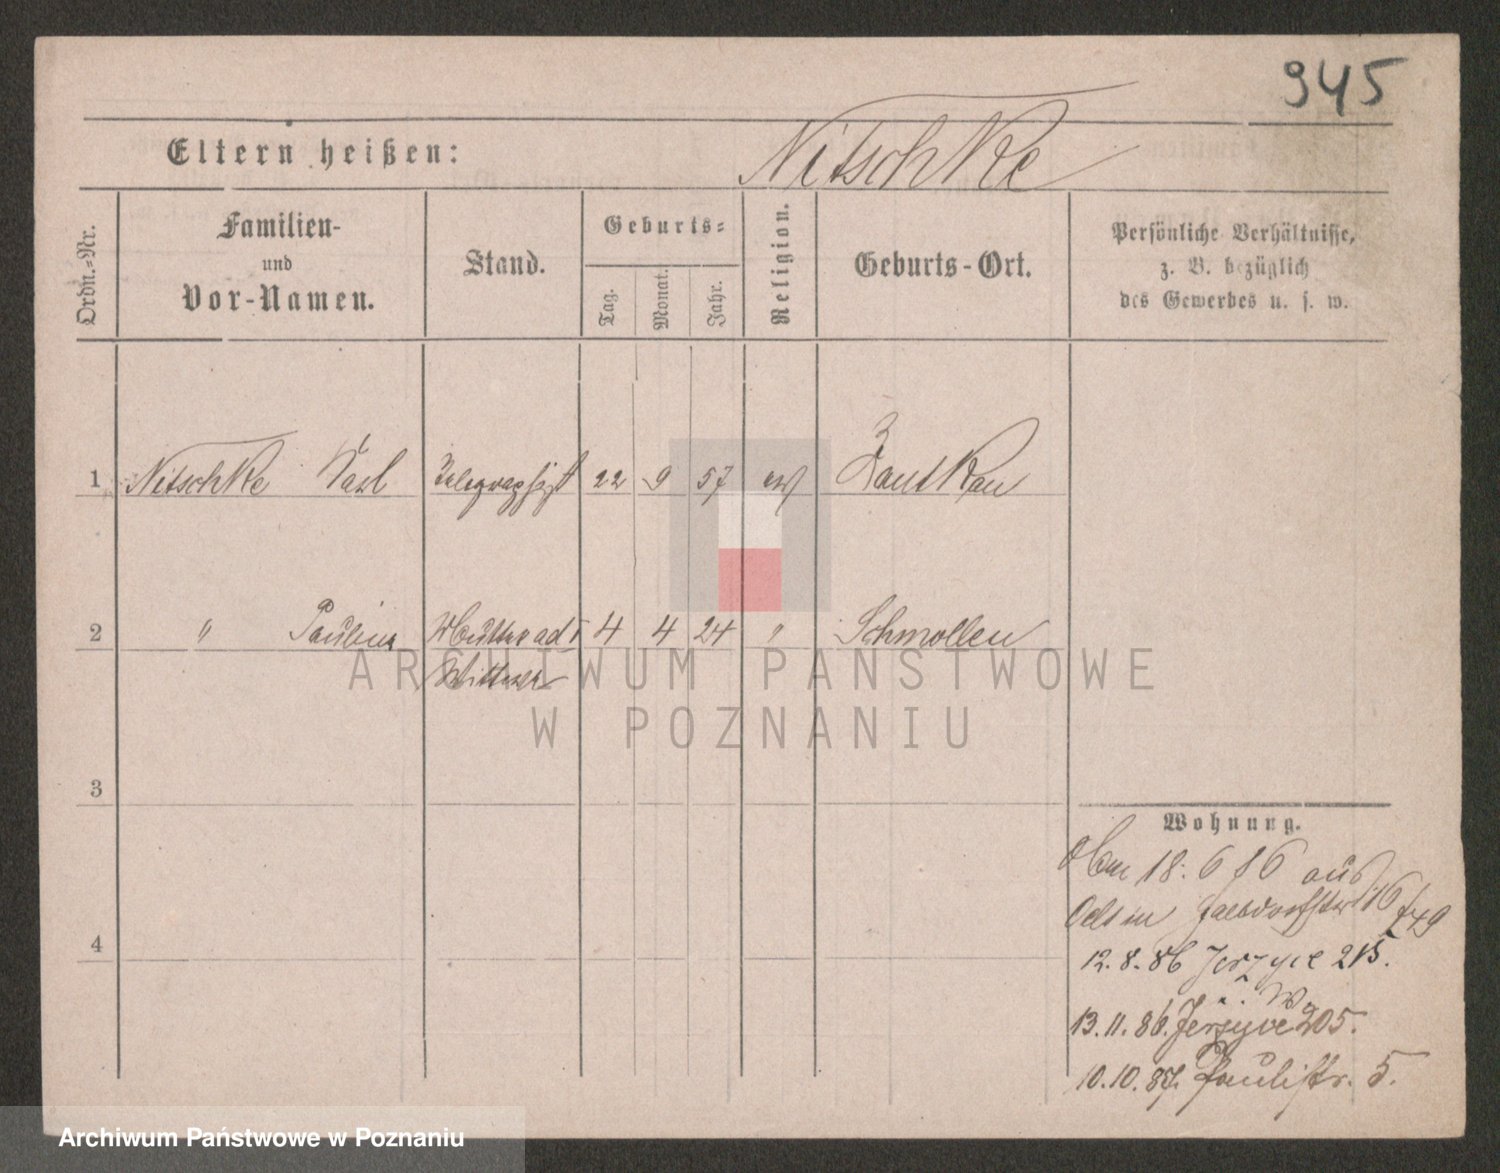 945
Eltern heißen: Nitschke
Ordn.-Nr.
Familien-
und
Vor-Namen.
Stand.
Geburts-
Tag.
Monat.
Jahr.
Religion.
Geburts-Ort.
Persönliche Verhältnisse,
z. B. bezüglich
des Gewerbes u. s. w.
1 Nitschke Carl Telegraphist 22 9 57 ev Zantkau
2 " Pauline Mutter ad 1 4 4 24 " Schmollen
Wittwe
3
4
Wohnung.
18. 6 86 aus
16/49
12. 8. 86 Jerzyce 215.
13. 11. 86. Jerzyce 205.
10. 10. 87. Paulistr. 5.
ARCHIWUM PAŃSTWOWE
W POZNANIU
Archiwum Państwowe w Poznaniu